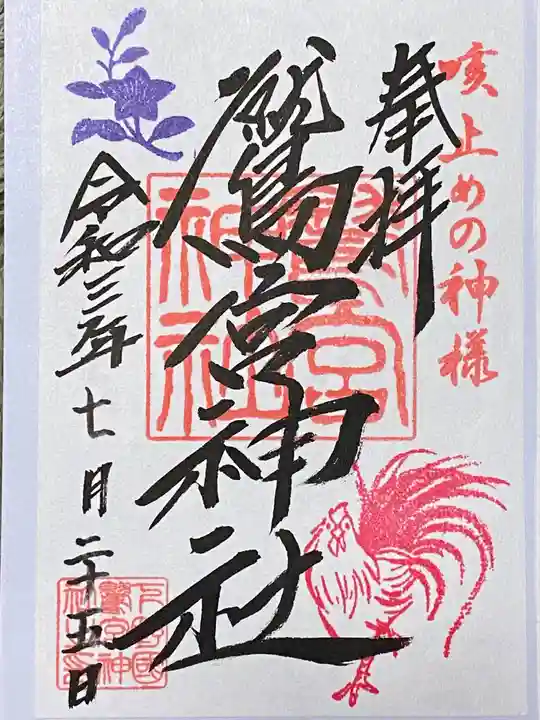 咳止めの神様
奉拝
鷲宮神社
鷲宮
神社
令和三年七月二十五日
下野國
鷲宮神